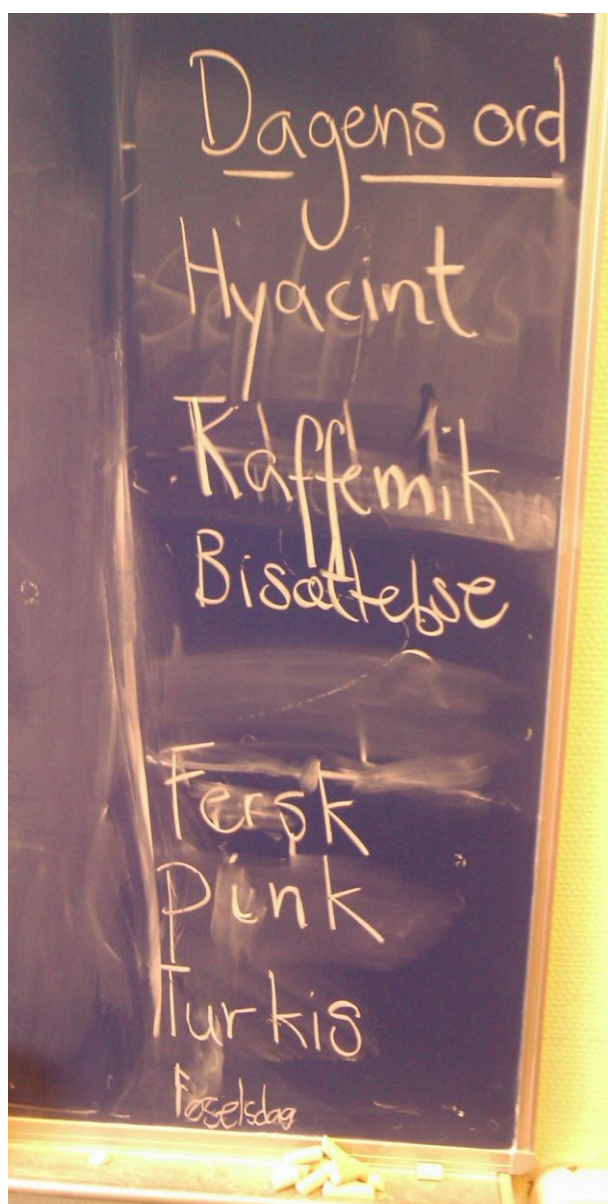 Dagens ord
Hyacint
Kaffemik
Bisættelse
Fersk
Pink
Turkis
Føselsdag